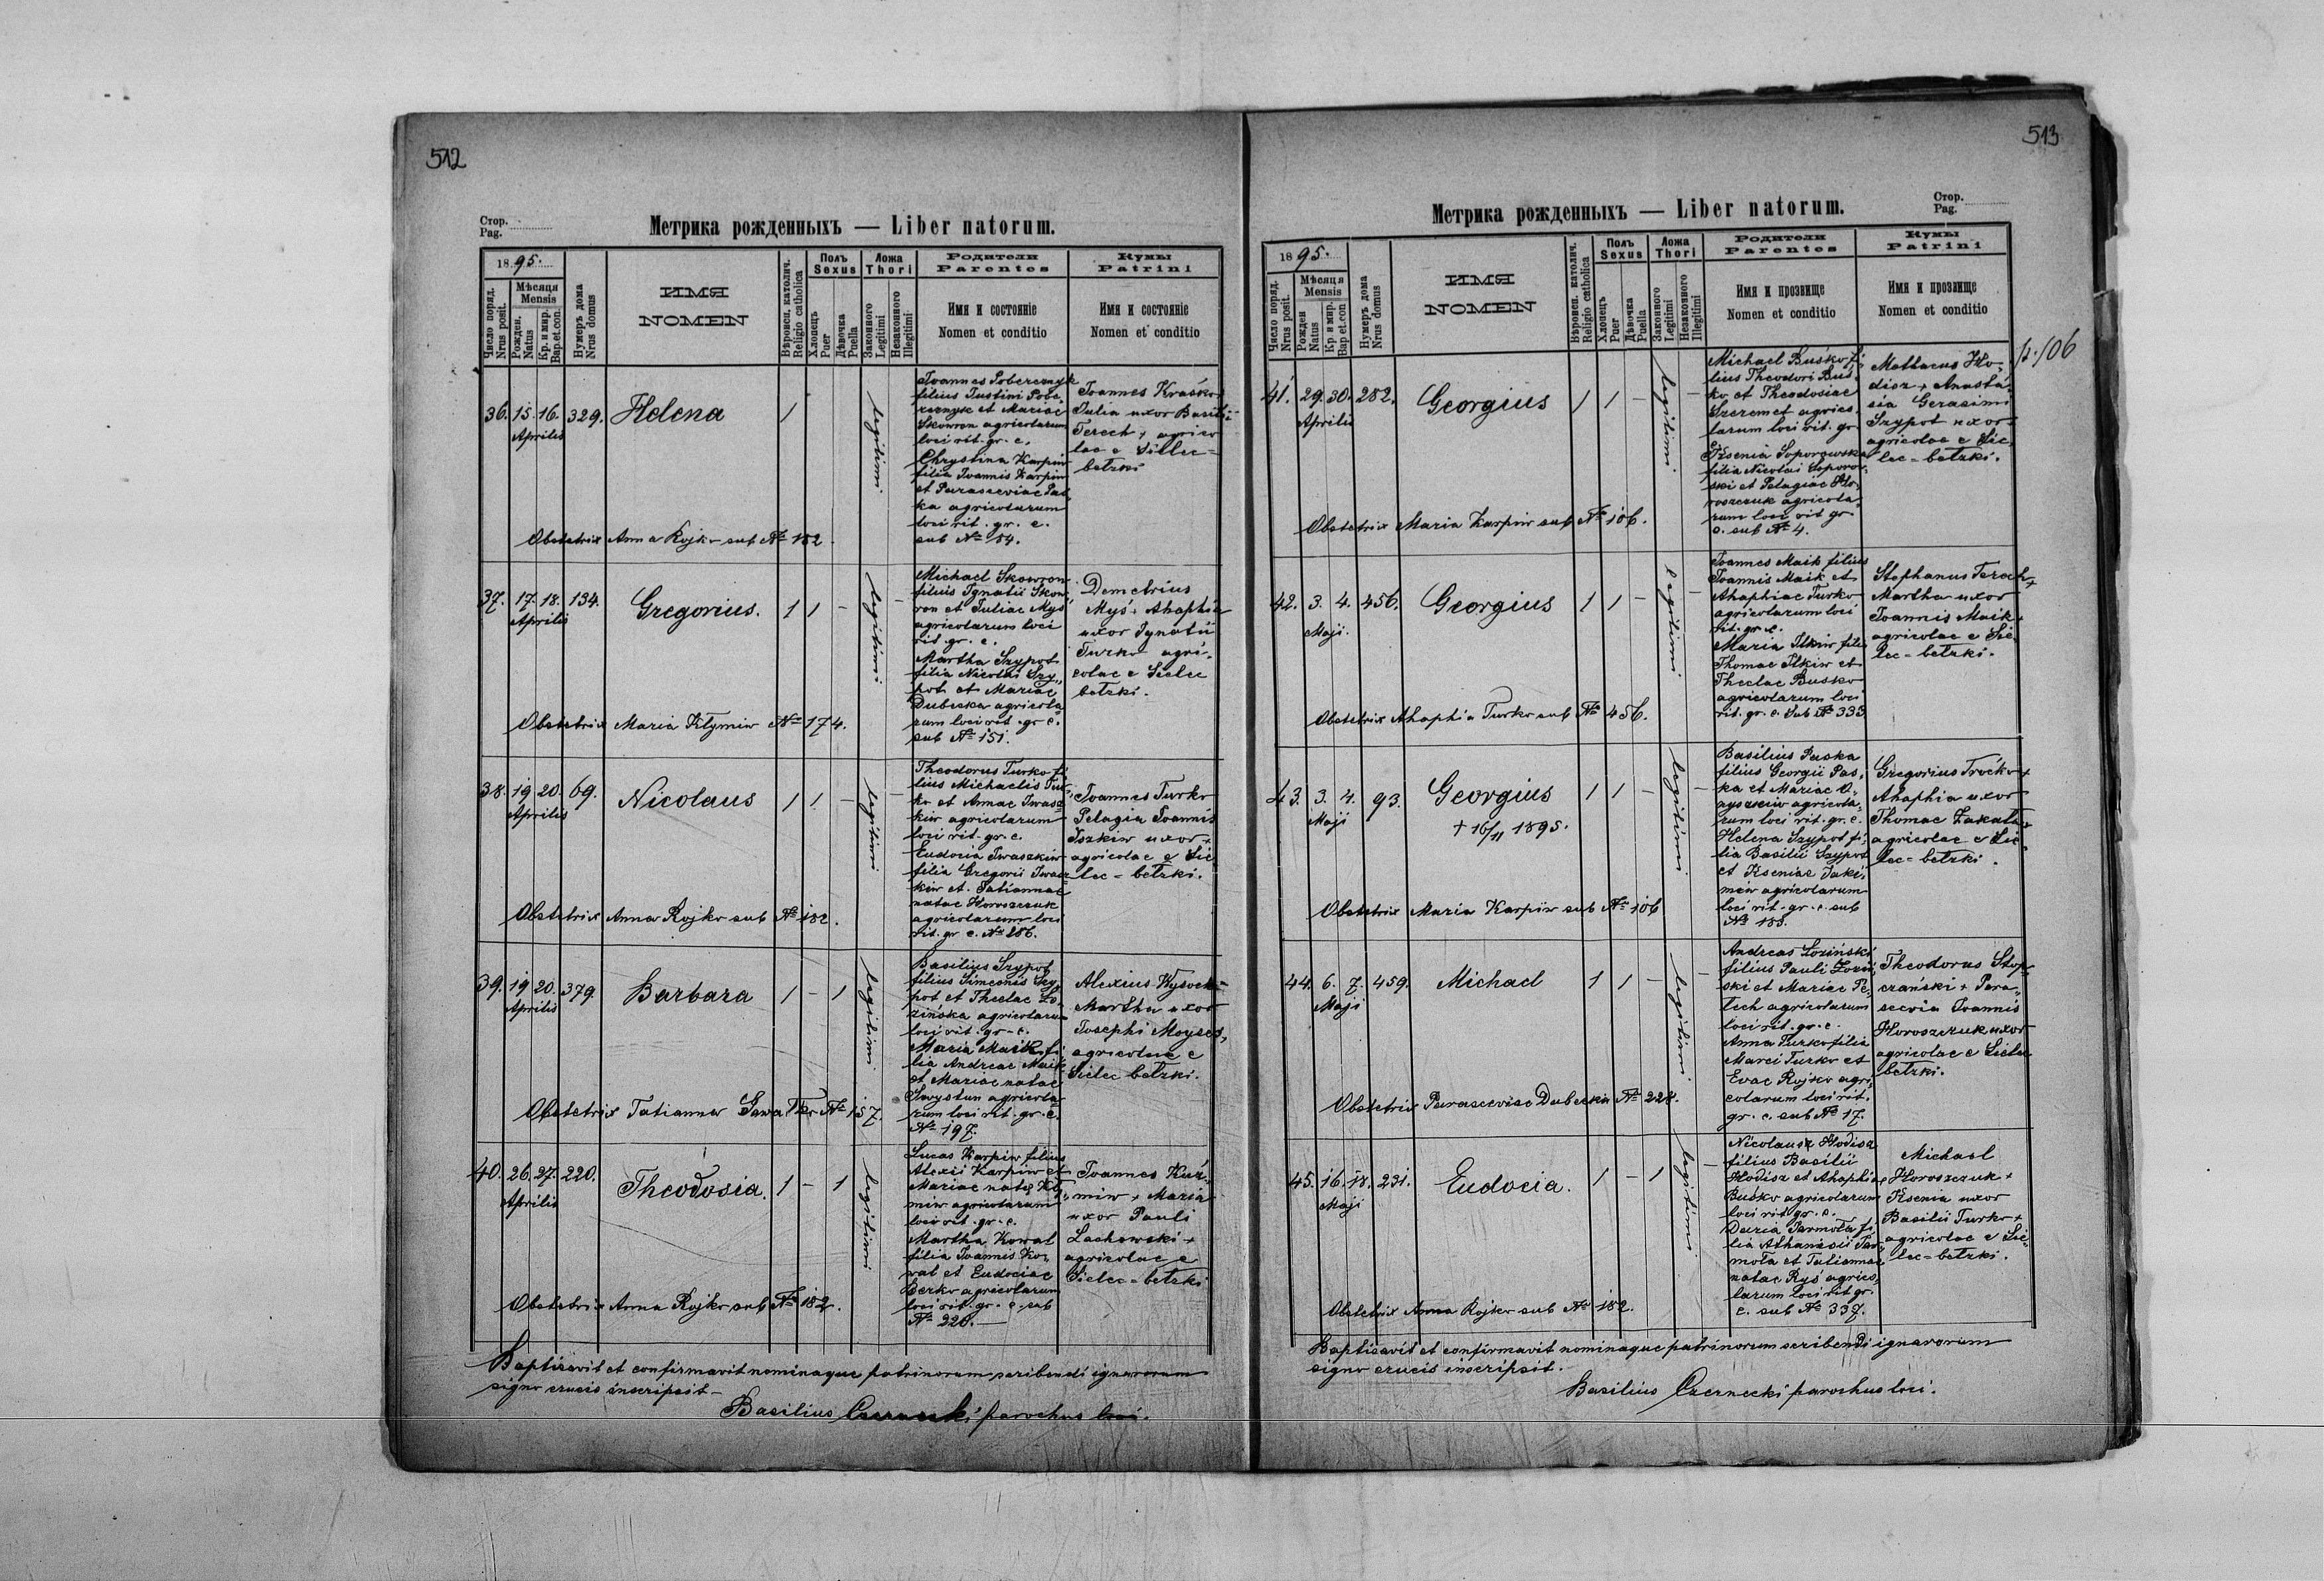 512
Стор.
Pag.
Метрика рожденныхъ — Liber natorum.
1895.
Число поряд.
Nrus posit.
Мѣсяця
Mensis
Рожден.
Natus
Кр. и мир.
Bap. et con.
Нумеръ дома
Nrus domus
ИМЯ
NOMEN
Вѣроисп. католич.
Religio catholica
Полъ
Sexus
Хлопецъ
Puer
Дѣвочка
Puella
Ложа
Thori
Законного
Legitimi
Незаконного
Illegitimi
Родители
Parentes
Имя и состояніе
Nomen et conditio
Кумы
Patrini
Имя и состояніе
Nomen et conditio
36. 15. 16. 329. Helena 1
Aprilis
legitimi
Joannes Pobereznyk
filius Justini Pobe-
reznyk et Mariae
Skowron agricolarum
loci rit. gr. c.
Chrystina Karpiw
filia Joannis Karpiw
et Parasceviae Pas-
ka agricolarum
loci rit. gr. c.
sub № 54.
Joannes Krasko
Julia uxor Basilii
Terech + agrico
lae e Sielec-
bełzki
Obstetrix Anna Rojko sub № 182
37. 17. 18. 134. Gregorius. 1 1 -
Aprilis
legitimi
Michael Skowron
filius Ignatii Skow-
ron et Juliae Myś
agricolarum loci
rit. gr. c.
Martha Szypot
filia Nicolai Szy-
pot et Mariae
Dubecka agricola-
rum loci rit. gr. c.
sub № 151.
Demetrius
Myś + Ahaphia
uxor Ignatii
Turko agri-
colae e Sielec
bełzki.
Obstetrix Maria Kłymiw № 174.
38. 19. 20. 69. Nicolaus 1 1 -
Aprilis
legitimi
Theodorus Turko fi-
lius Michaelis Tur-
ko et Annae Iwasz-
kiw agricolarum
loci rit. gr. c.
Eudocia Iwaszkiw
filia Gregorii Iwasz-
kiw et Tatiannae
natae Horoszczuk
agricolarum loci
rit. gr. c. № 286.
Joannes Turko
Pelagia Joannis
Iszkiw uxor +
agricolae e Sie
lec-bełzki.
Obstetrix Anna Rojko sub № 182.
39. 19. 20. 379. Barbara 1 - 1
Aprilis
legitimi
Basilius Szypot
filius Simeonis Szy-
pot et Theclae Ło-
zińska agricolarum
loci rit. gr. c.
Maria Maik fi-
lia Andreae Maik
et Mariae natae
Sawystun agricola-
rum loci rit. gr. c.
№ 197.
Alexius Wysocki
Martha uxor
Josephi Moyses,
agricolae e
Sielec bełzki.
Obstetrix Tatianna № 157.
40. 26. 27. 220. Theodosia. 1 - 1
Aprilis
legitimi
Lucas Karpiw filius
Alexii Karpiw et
Mariae natae Kły-
miw agricolarum
loci rit. gr. c.
Martha Kowal
filia Joannis Ko-
wal et Eudociae
Herko agricolarum
loci rit. gr. c. sub
№ 220.
Joannes Kuź-
miw + Maria
uxor Pauli
Lachowski +
agricolae e
Sielec-bełzki
Obstetrix Anna Rojko sub № 182.
Baptisavit et confirmavit nominaque patrinorum scribendi ignarorum
signo crucis inscripsit -
Basilius Czernecki parochus loci.
513
Стор.
Pag.
Метрика рожденныхъ — Liber natorum.
1895.
Число поряд.
Nrus posit.
Мѣсяця
Mensis
Рожден
Natus
Кр. и мир.
Bap et con
Нумеръ дома
Nrus domus
ИМЯ
NOMEN
Вѣроисп. католич.
Religio catholica
Полъ
Sexus
Хлопецъ
Puer
Дѣвочка
Puella
Ложа
Thori
Законного
Legitimi
Незаконного
Illegitimi
Родители
Parentes
Имя и прозвище
Nomen et conditio
Кумы
Patrini
Имя и прозвище
Nomen et conditio
p. 106
41. 29. 30. 282. Georgius 1 1 -
Aprilis
legitimi
Michael Buśko fi-
lius Theodori Buś-
ko et Theodosiae
Szeremet agrico-
larum loci rit. gr.
c.
Ksenia Soporowska
filia Nicolai Soporow-
ski et Pelagiae Ho-
roszczuk agricola-
rum loci rit gr.
c. sub № 4.
Mattaeus Ho-
disz + Anasta-
sia Gerasimi
Szypot uxor
agricolae e Sie
lec-bełzki.
Obstetrix Maria Karpiw sub № 106.
42. 3. 4. 456. Georgius 1 1 -
Maji.
legitimi
Joannes Maik filius
Joannis Maik et
Ahaphiae Turko
agricolarum loci
rit. gr. c.
Maria Ilkiw filia
Thomae Ilkiw et
Theclae Busko
agricolarum loci
rit. gr. c. sub № 333
Stephanus Terech +
Martha uxor
Joannis Maik +
agricolae e Sie
lec-bełzki.
Obstetrix Ahaphia Turko sub № 456.
43. 3. 4. 93. Georgius 1 1 -
Maji
+ 16/11 1895.
legitimi
Basilius Paska
filius Georgii Pas-
ka et Mariae O-
nyszkiw agricola-
rum loci rit. gr. c.
Helena Szypot fi-
lia Basilii Szypot
et Kseniae Jaki-
miw agricolarum
loci rit. gr. c. sub
№ 185.
Gregorius Troćko +
Ahaphia uxor
Thomae Zakala +
agricolae e Sie
lec-bełzki.
Obstetrix Maria Karpiw sub № 106
44. 6. 7. 459. Michael 1 1 -
Maji
legitimi
Andreas Łoziński
filius Pauli Łoziń-
ski et Mariae Pe-
lech agricolarum
loci rit. gr. c.
Anna Turko filia
Marci Turko et
Evae Rojko agri-
colarum loci rit.
gr. c. sub № 17.
Theodorus Stop-
czanski + Para-
scevia Joannis
Horoszczuk uxor
agricolae e Sielec
bełzki.
Obstetrix Parascevia Dubecka № 228.
45. 16. 18. 231. Eudocia. 1 - 1
Maji
legitimi
Nicolaus Hodisz
filius Basilii
Hodisz et Ahaphiae
Buśko agricolarum
loci rit. gr. c.
Daria Jarmoła fi-
lia Athanasii Jar-
moła et Tatiannae
natae Ryś agrico-
larum loci rit gr.
c. sub № 337.
Michael
Horoszczuk +
Ksenia uxor
Basilii Turko +
agricolae e Sie-
lec-bełzki.
Obstetrix Anna Rojko sub № 182.
Baptisavit et confirmavit nominaque patrinorum scribendi ignarorum
signo crucis inscripsit.
Basilius Czernecki parochus loci.